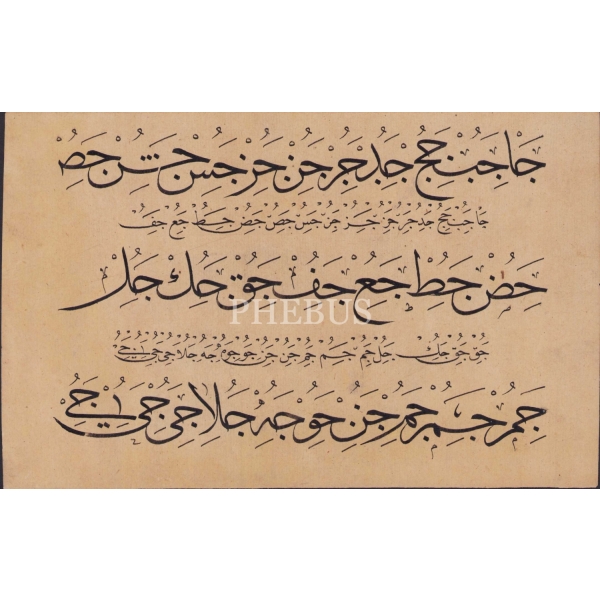 جا جب جج جد جر جن جز جس جش جص
جا جب جج جد جر جن جز جس جص جض جط جع جف
جض جط جع جف جق جك جل
PHEBUS
جق جق جك جل جم جم جم جن جن جو جو جه جلا جى جى
جم جم جم جن جو جه جلا جى جى جى